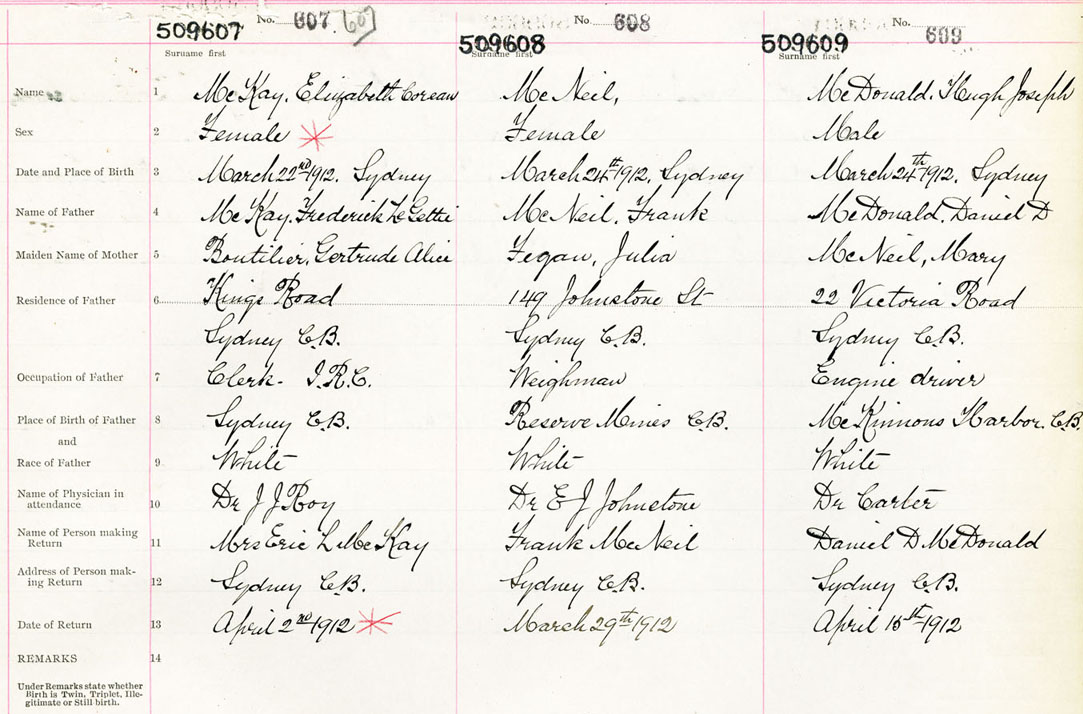 No. 607 60
No. 608
No. 609
509607
509608
509609
Surname first
Surname first
Surname first
Name 1 McKay, Elizabeth Corean McNeil, McDonald, Hugh Joseph
Sex 2 Female Female Male
Date and Place of Birth 3 March 22nd 1912, Sydney March 24th 1912, Sydney March 24th 1912, Sydney
Name of Father 4 McKay, Frederick McNeil, Frank McDonald, Daniel D
Maiden Name of Mother 5 Boutilier, Gertrude Alice Fegan, Julia McNeil, Mary
Residence of Father 6 Kings Road 149 Johnstone St 22 Victoria Road
Sydney C.B. Sydney C.B. Sydney C.B.
Occupation of Father 7 Clerk - I.R.C. Weighman Engine driver
Place of Birth of Father 8 Sydney C.B. Reserve Mines C.B. McKinnons Harbor, C.B.
and
Race of Father 9 White White White
Name of Physician in
attendance 10 Dr J J Roy Dr E J Johnstone Dr Carter
Name of Person making
Return 11 Mrs Eric L McKay Frank McNeil Daniel D McDonald
Address of Person mak-
ing Return 12 Sydney C.B. Sydney C.B. Sydney C.B.
Date of Return 13 April 2nd 1912 March 29th 1912 April 15th 1912
REMARKS 14
Under Remarks state whether
Birth is Twin, Triplet, Ille-
gitimate or Still birth.